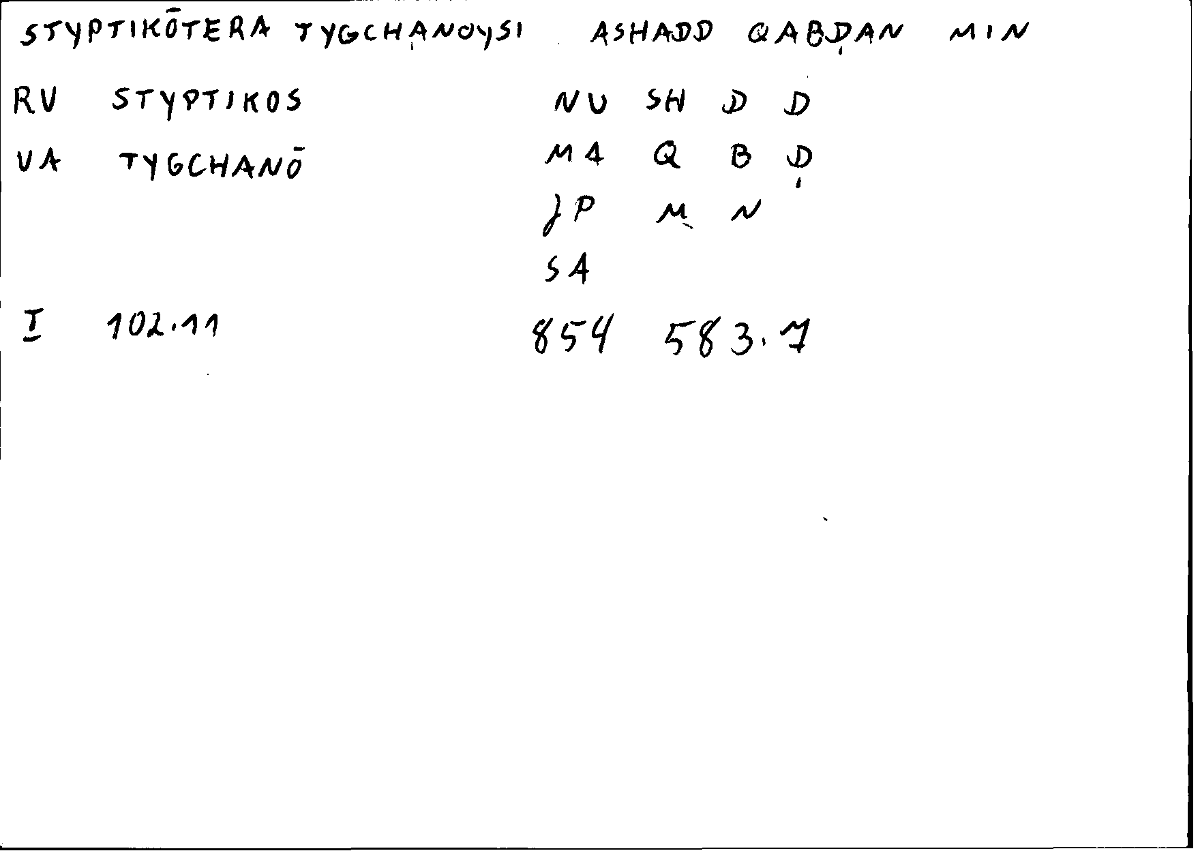 STYPTIKŌTERA TYGCHANOYSI ASHADD QABḌAN MIN
RV STYPTIKOS NU SH D D
VA TYGCHANŌ MA Q B Ḍ
JP M N
SA
I 102.11 854 583.7